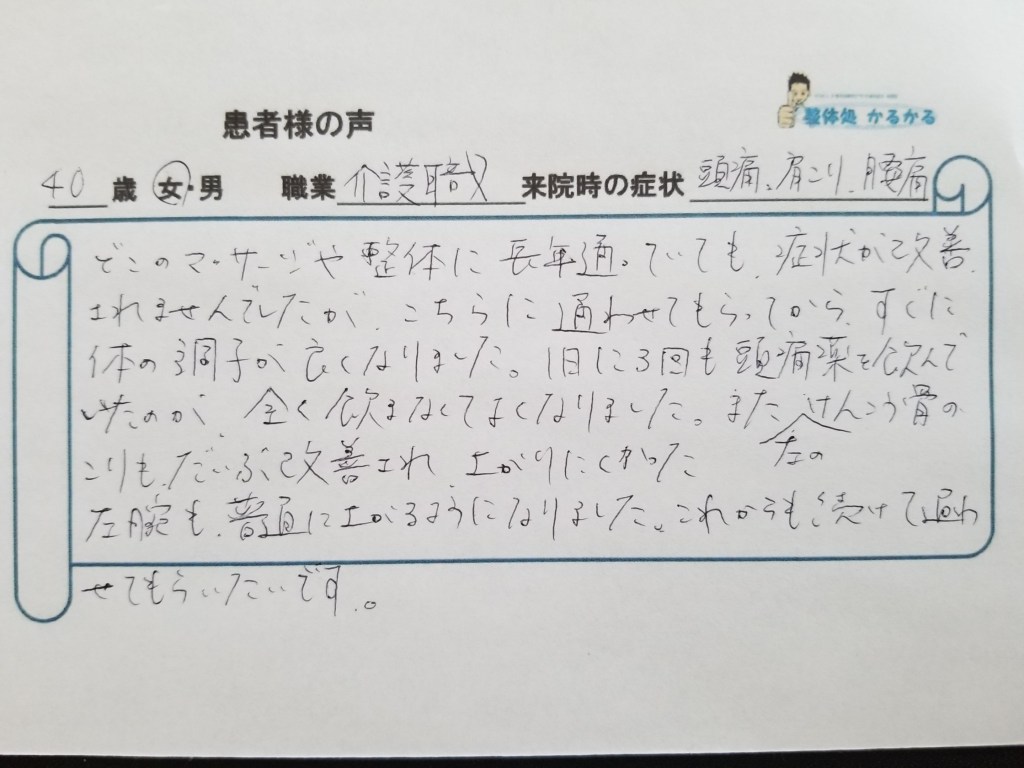 整体処 かるかる
患者様の声
40 歳 女・男 職業 介護職 来院時の症状 頭痛、肩こり、腰痛
どこのマッサージや整体に長年通っていても、症状が改善
されませんでしたが、こちらに通わせてもらってから、すぐに
体の調子が良くなりました。1日に3回も頭痛薬を飲んで
いたのが、全く飲まなくてよくなりました。また左のけんこう骨の
こりも、だいぶ改善され、上がりにくかった
左腕も、普通に上がるようになりました。これからも続けて通わ
せてもらいたいです。